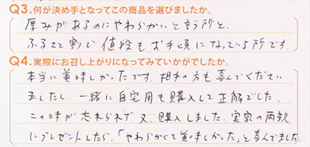 Q3.何が決め手となってこの商品を選びましたか。
厚みがあるのにやわらかいと言う所と、
ふるさと割で値段もお手頃になっている所です。
Q4.実際にお召し上がりになってみていかがでしたか。
本当に美味しかったです。相手の方も喜んでください
ましたし、一緒に自宅用も購入して正解でした。
この味が忘れられず又、購入しました。実家の両親
にプレゼントしたら、「やわらかくて美味しかった」と喜んでました。